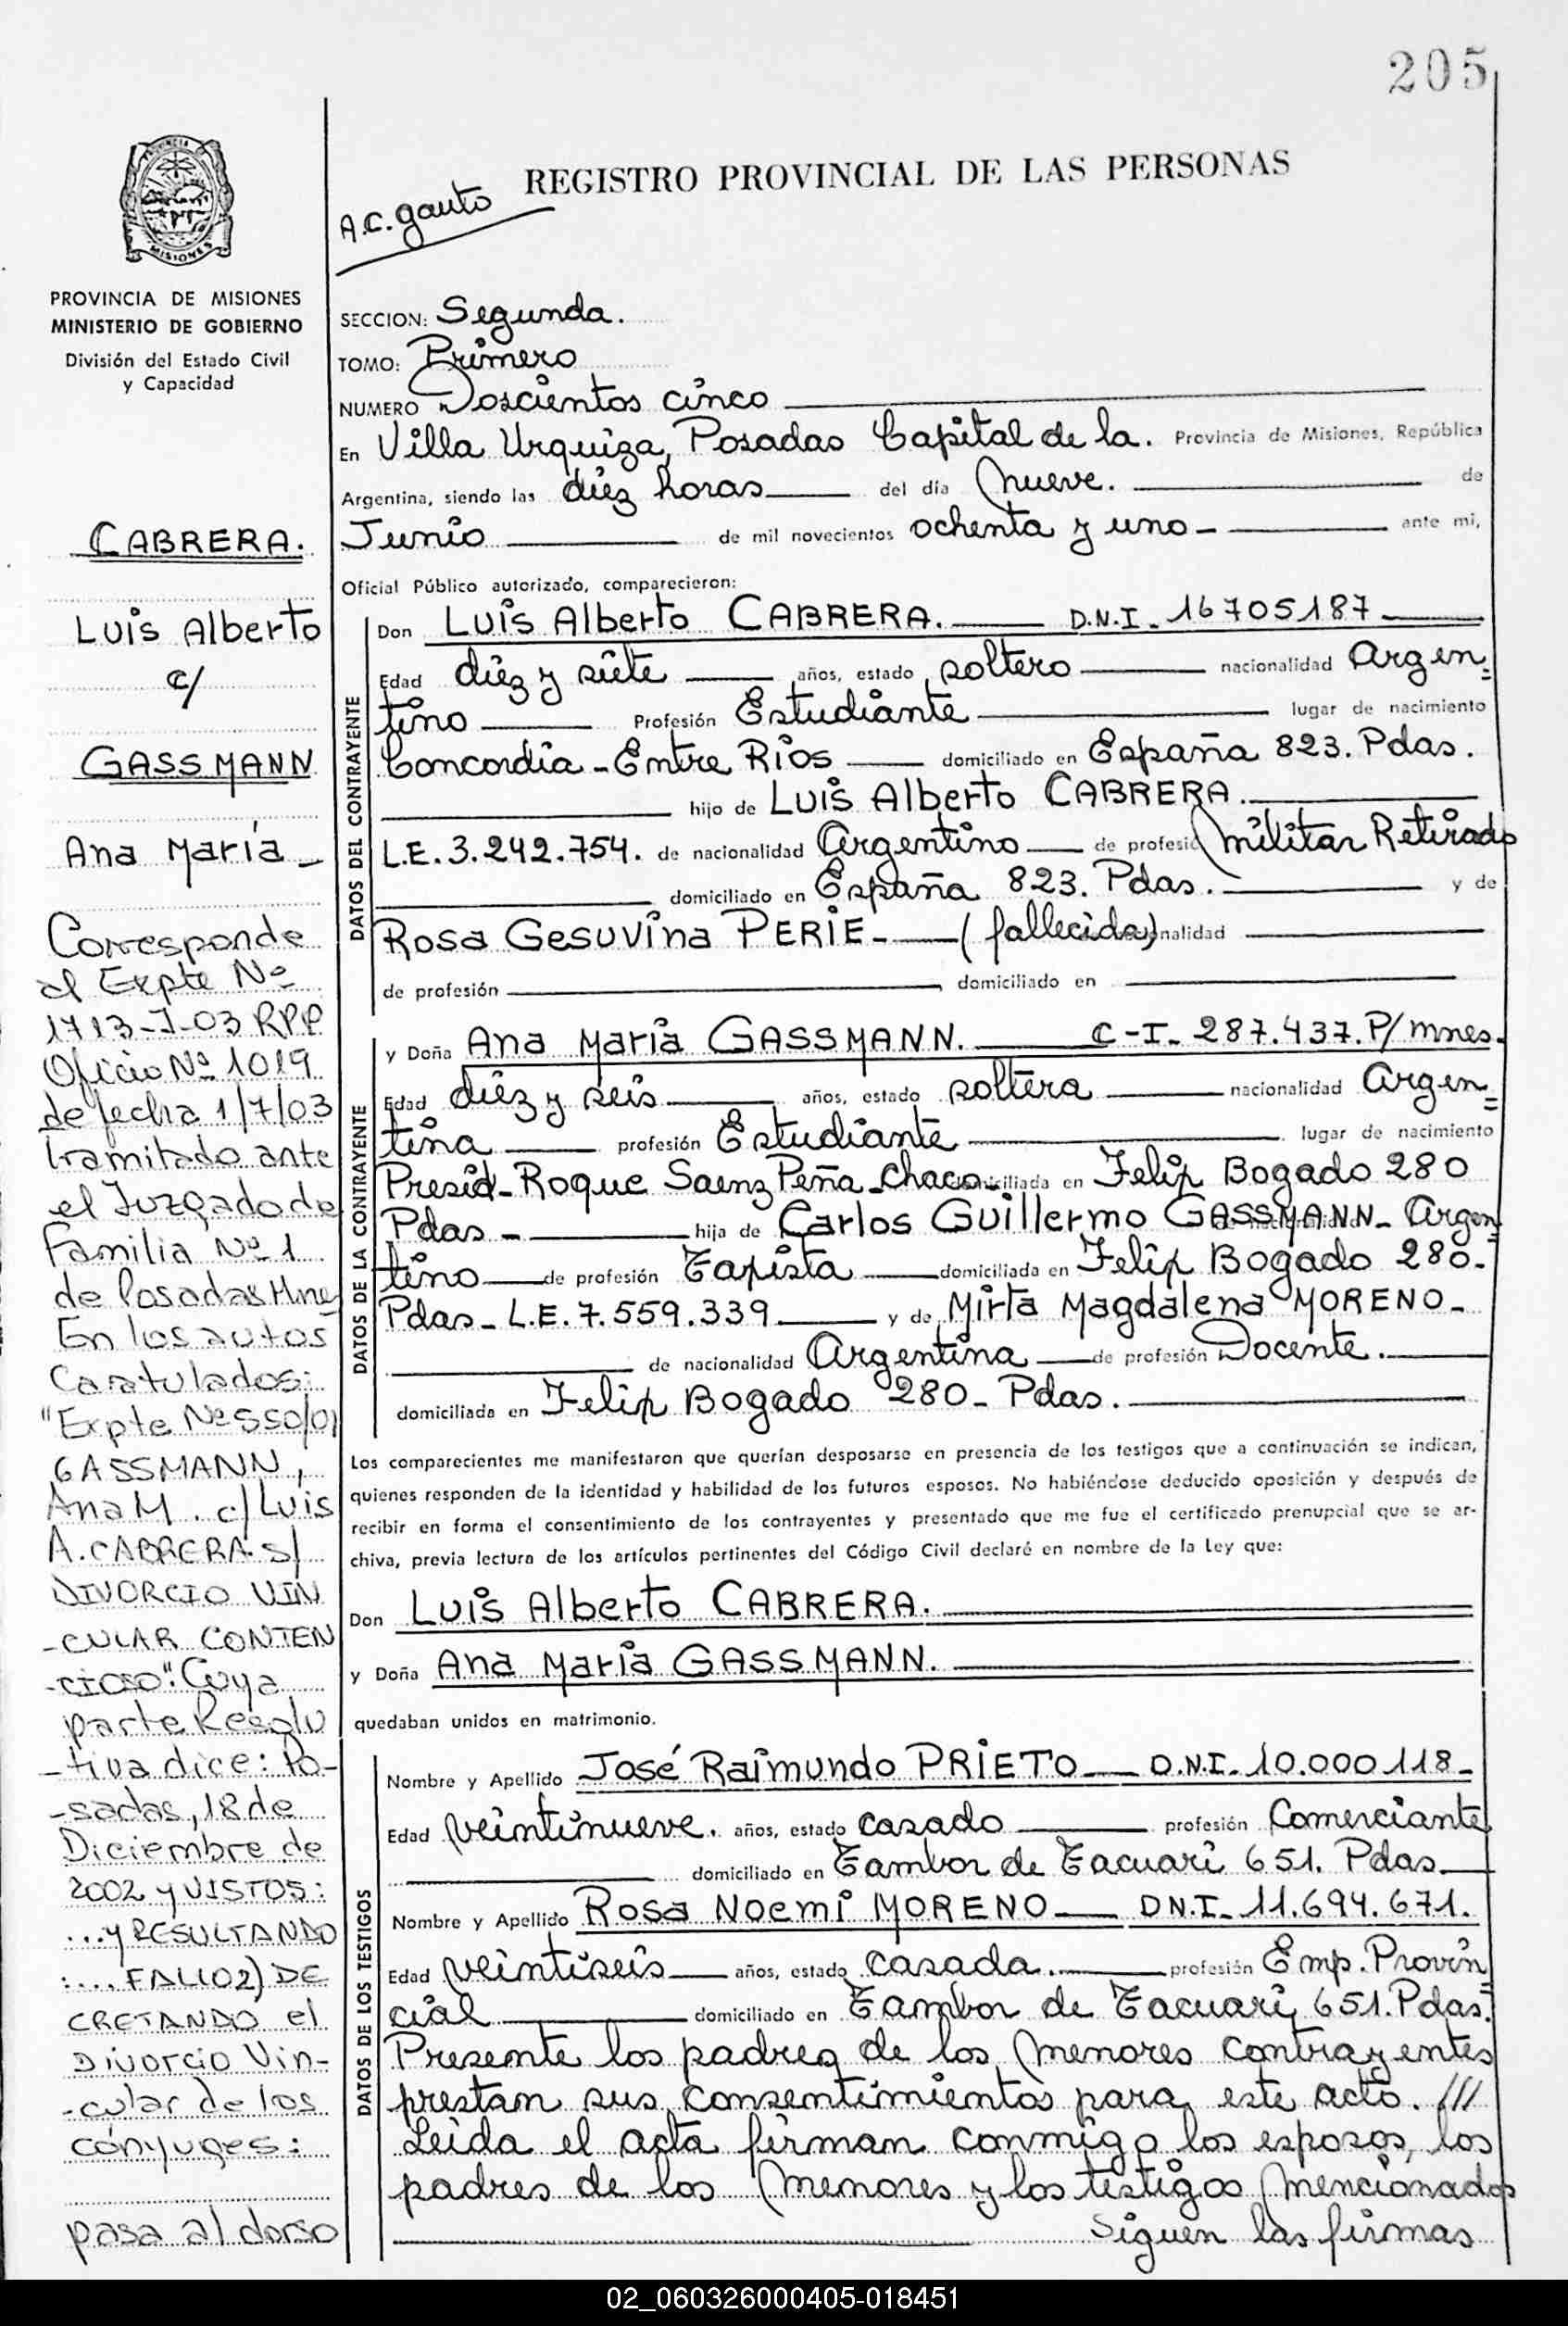 205
REGISTRO PROVINCIAL DE LAS PERSONAS
A.C. gauto
PROVINCIA DE MISIONES
MINISTERIO DE GOBIERNO
División del Estado Civil
y Capacidad
CABRERA.
Luis Alberto
c/
GASSMANN
Ana María -
Corresponde
al Expte Nº
1713-J-03 RPP
Oficio Nº 1019
de fecha 1/7/03
tramitado ante
el Juzgado de
Familia Nº 1
de Posadas Mnes
En los autos
Caratulados:
"Expte Nº 550/01
GASSMANN,
Ana M. c/ Luis
A. CABRERA S/
DIVORCIO VIN
-CULAR CONTEN
-CIOSO". Cuya
parte Resolu
-tiva dice: Po-
-sadas, 18 de
Diciembre de
2002 y VISTOS:
...y RESULTANDO
:.... FALLO 2) DE
CRETANDO el
Divorcio Vin-
-cular de los
cónyuges:
pasa al dorso
SECCION: Segunda.
TOMO: Primero
NUMERO Doscientos cinco
En Villa Urquiza, Posadas Capital de la. Provincia de Misiones, República
Argentina, siendo las diez horas del día nueve. de
Junio de mil novecientos ochenta y uno - ante mi,
Oficial Público autorizado, comparecieron:
DATOS DEL CONTRAYENTE
Don Luis Alberto CABRERA. D.N.I. 16705187
Edad diez y siete años, estado soltero nacionalidad Argen=
tino Profesión Estudiante lugar de nacimiento
Concordia - Entre Ríos domiciliado en España 823. Pdas.
hijo de Luis Alberto CABRERA.
L.E. 3.242.754. de nacionalidad Argentino de profesió Militar Retirado
domiciliado en España 823. Pdas. y de
Rosa Gesuvina PERIE - (fallecida) nacionalidad
de profesión domiciliado en
DATOS DE LA CONTRAYENTE
y Doña Ana María GASSMANN. C-I- 287.437. P/ mnes.
Edad diez y seis años, estado soltera nacionalidad Argen=
tina profesión Estudiante lugar de nacimiento
Presid- Roque Saenz Peña - Chaco - domiciliada en Felip Bogado 280
Pdas - hija de Carlos Guillermo GASSMANN - Argen
tino de profesión Tapista domiciliada en Felip Bogado 280.
Pdas - L.E. 7.559.339 y de Mirta Magdalena MORENO -
de nacionalidad Argentina de profesión Docente.
domiciliada en Felip Bogado 280 - Pdas.
Los comparecientes me manifestaron que querían desposarse en presencia de los testigos que a continuación se indican,
quienes responden de la identidad y habilidad de los futuros esposos. No habiéndose deducido oposición y después de
recibir en forma el consentimiento de los contrayentes y presentado que me fue el certificado prenupcial que se ar-
chiva, previa lectura de los artículos pertinentes del Código Civil declaré en nombre de la Ley que:
Don Luis Alberto CABRERA.
y Doña Ana María GASSMANN.
quedaban unidos en matrimonio.
DATOS DE LOS TESTIGOS
Nombre y Apellido José Raimundo PRIETO D.N.I. 10.000.118 -
Edad veintinueve. años, estado casado profesión Comerciante
domiciliado en Tambor de Tacuarí 651. Pdas
Nombre y Apellido Rosa Noemí MORENO D.N.I. 11.694.671.
Edad veintiseis años, estado casada. profesión Emp. Provin
cial domiciliado en Tambor de Tacuarí 651. Pdas.
Presente los padres de los menores contrayentes
prestan sus consentimientos para este acto. ///
Leida el acta firman conmigo los esposos, los
padres de los menores y los testigos mencionados
Siguen las firmas
02_060326000405-018451